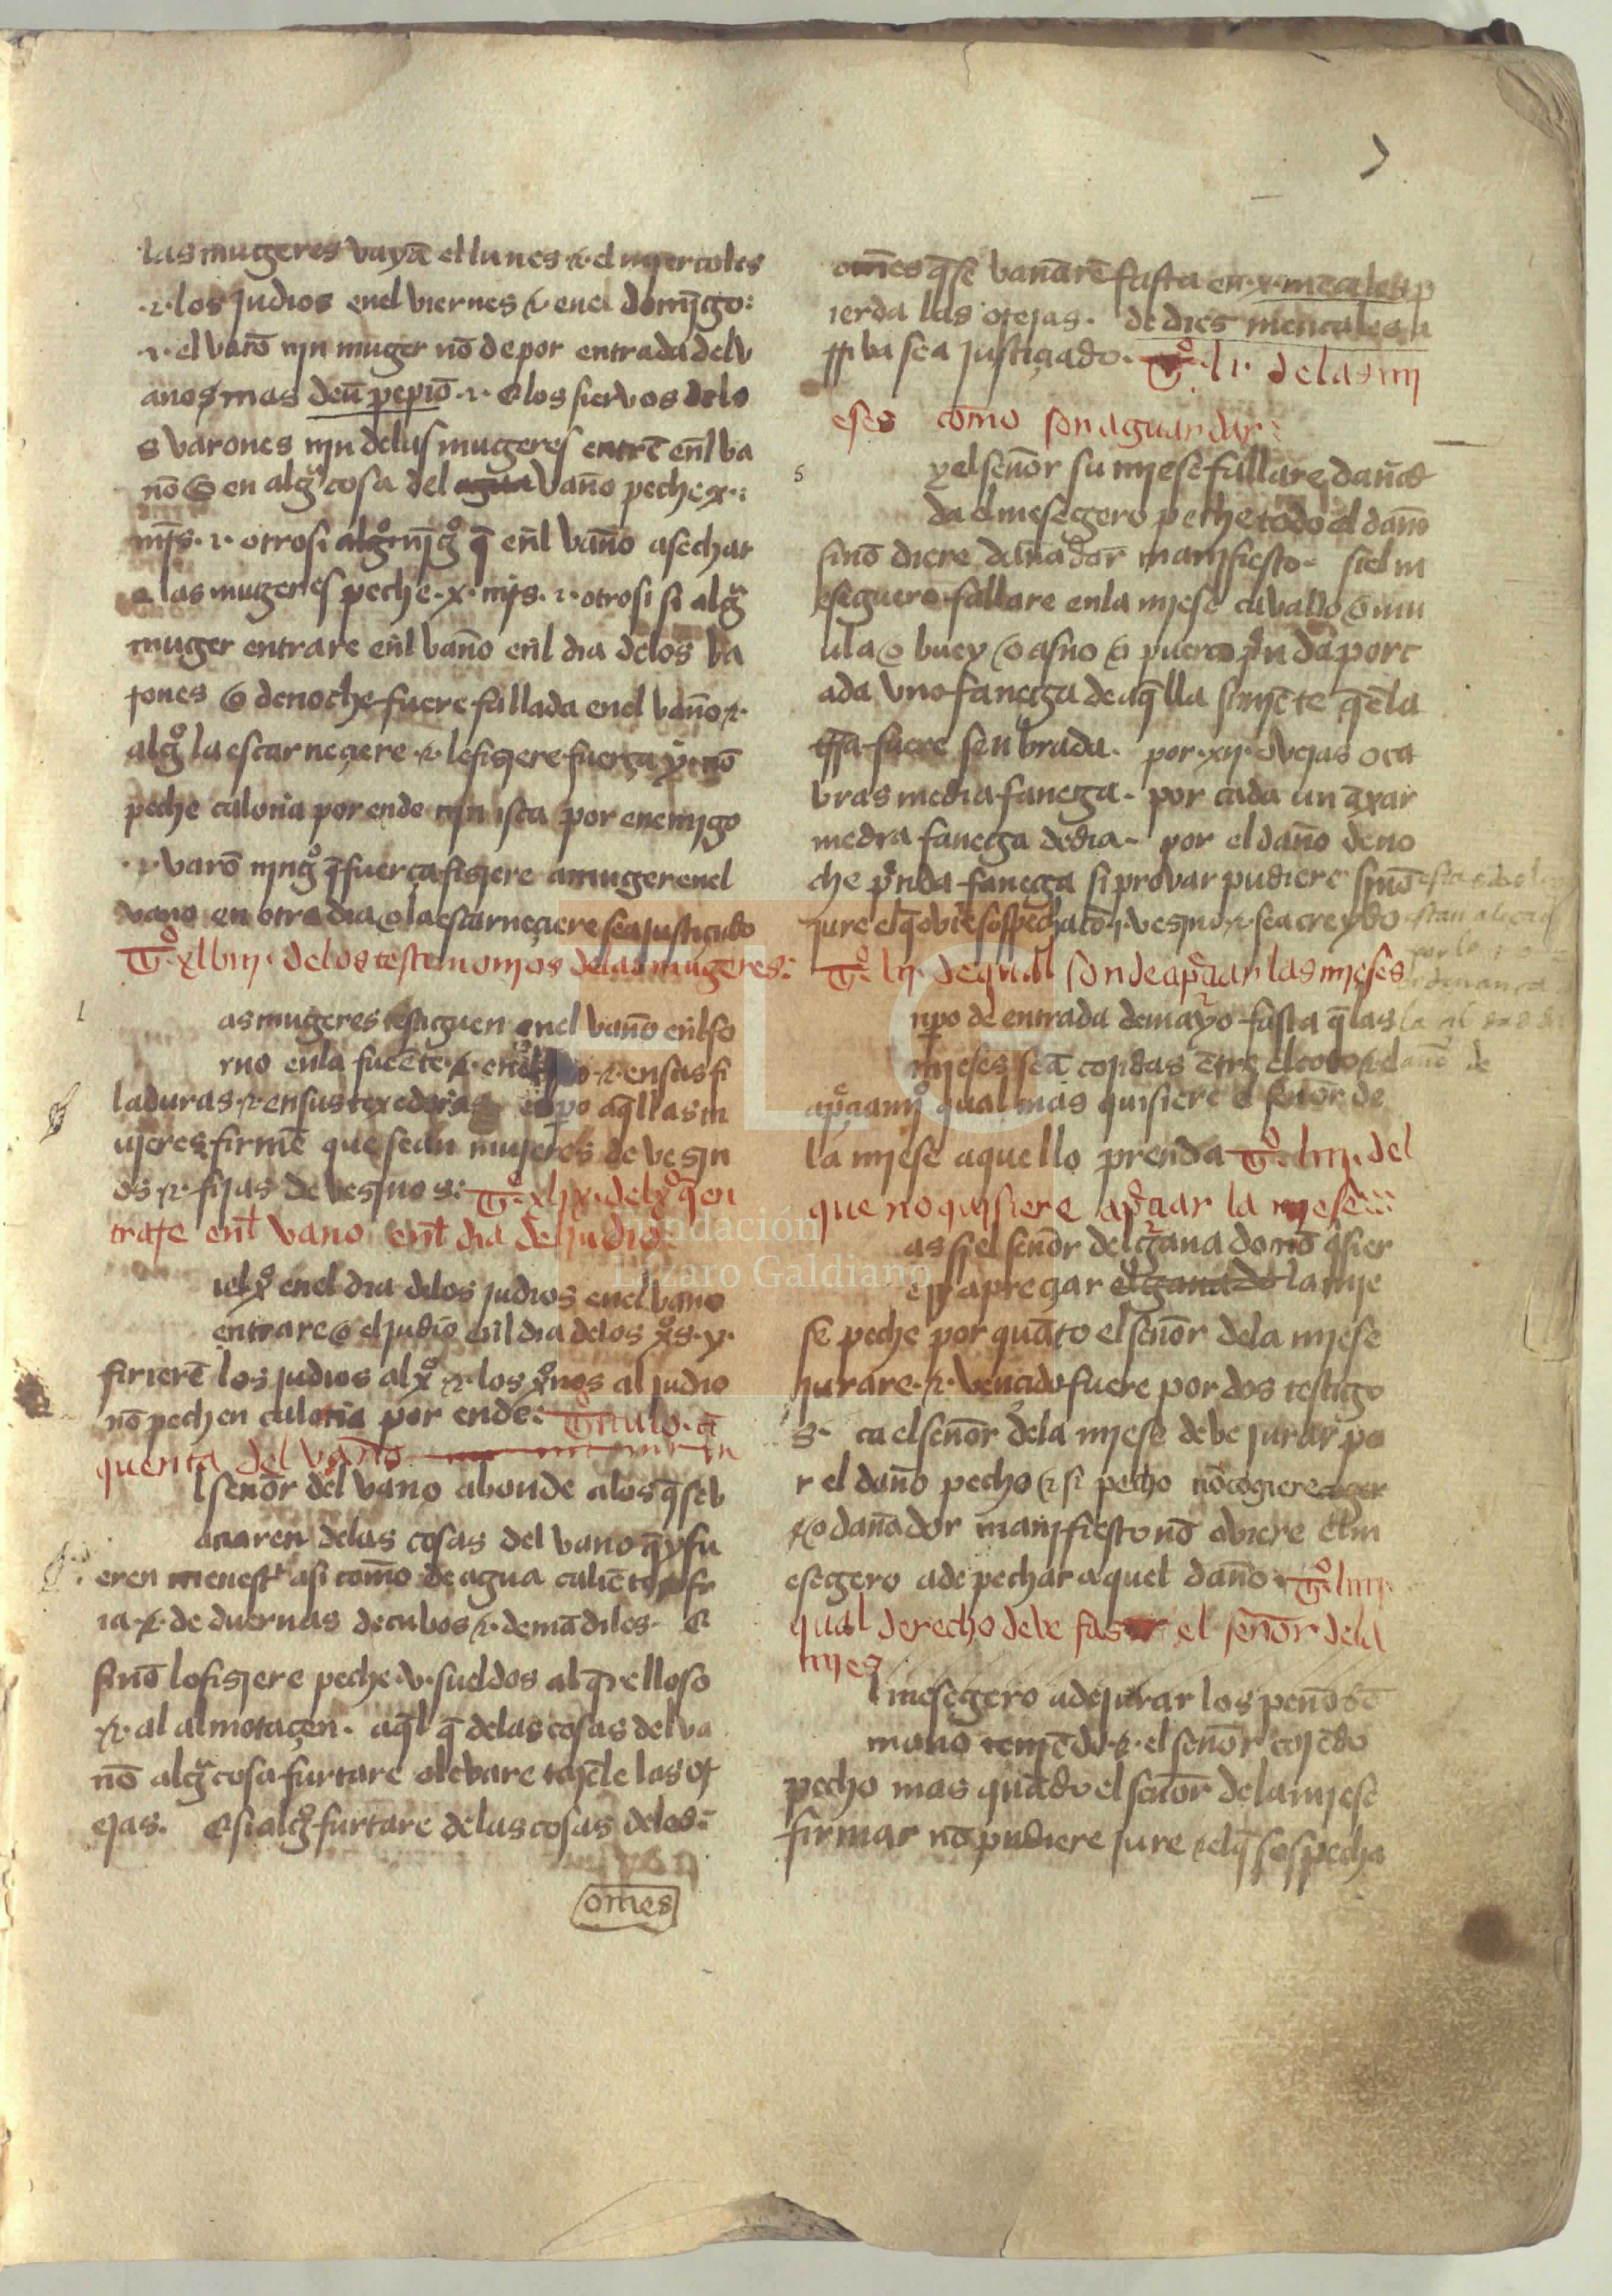 las mugeres vayā el lunes ⁊ el mjercoles
.⁊. los judios enel viernes ⁊ enel domīgo:
.⁊. el varō njn muger nō de por entrada del v
ano mas deū pepiō .⁊. e los siervos delo
s varones njn delas mugeres entrē eñl ba
ño o en algª cosa del agua vaño peche x.
mr̄s. ⁊. otrosi algº njgº q̄ eñl vaño asechar
a las mugeres peche .x. mr̄s. ⁊. otrosi si algª
muger entrare eñl vaño eñl dia delos ba
rones o denoche fuere fallada enel vaño ⁊.
algº la escarneçere .⁊. le fiziere fuerça nō
peche calonia por ende njn ista por enemigo
.⁊ varō njngº q̄ fuerça fiziere a muger enel
vano en otro dia o la escarneçiere sea justiçiado
Tº. xlbiij. delos testimonjos delas mugeres:
l
as mugeres testiguen enel vaño eñl fo
rno enla fuēte ⁊. ⁊. en sus fi
laduras ⁊ en sus texeduras aq̄llas m
ujeres firmē que sean mujeres de vezin
os .⁊. fijas de vezinos: Tº. xlix. del xº q̄ en
trare eñl vano eñl dia del judio
uel xº enel dia delos judios enel vano
entrare o el judio eñl dia delos xºs. ⁊.
firierē los judios al xº .⁊. los xºnos al judio
nō pechen calonia por ende: Titulo. çī
quenta del vaño
l señor del vano abonde a los q̄ se b
anaren delas cosas del vano q̄ y fu
eren menestʳ asi como de agua caliēte o fr
ia ⁊. de duernas de cubos ⁊. de mādiles. e
sinō lo fiziere peche .v. sueldos al q̄relloso
⁊. al almotaçen. aq̄l q̄ delas cosas del va
nō algª cosa furtare o levare tajēle las or
ejas. e si algº furtare delas cosas delos:
omēs
omēs q̄ se vanārē fasta en .x. mēcales p
ierda las orejas. de dies mencales a
rriba sea justiçiado. Tº. li. delas mj
eses como son a guardar:
s
y el señor su mjese fallare dañad
da el mesegero peche todo el daño
sinō diere dañador manifiesto. si el m
eseguero fallare enla mjese cavallo o mu
ula o buey o asno o puerco prēndā por c
ada uno fanega de aq̄lla simiēte q̄ ēla
trr̄a fuere senbrada. por .xij. ovejas o ca
bras media fanega. por cada un āxar
media fanega de dia. por el daño de no
che prēnda fanega si provar pudiere sinō
jure el q̄ oviē sospecha cō .j. vezino ⁊ sea creydo
Tº. lij. de qual son de apreçiar las mjeses
npo de entrada de mayo fasta q̄ las
mjeses seā cojidas ētre el coto ⁊ el
apreçiamjº qual mas quisiere el señor de
la mjese aquello prenda Tº. liij. del
que no quisiere apreçiar la mjese
as si el señor del ganado nō q̄sier
e yr apreçar el ganado la mje
se peche por quāto el señor dela mjese
jurare .⁊. vençido fuere por dos testigo
s. ca el señor dela mjese debe jurar po
r el daño pecho ⁊ si pecho nō cogiere
⁊ o dañador manifiesto nō oviere el m
esegero a de pechar aquel daño. Tº. liiij.
qual derecho debe faser el señor dela
mjes
l mesegero a de jurar los peños ē
mano temēdo ⁊. el señor cojēdo
pecho mas quādo el señor dela mjese
firmar nō pudiere jure el q̄ sospecha
Fundación
Lázaro Galdiano
FLG